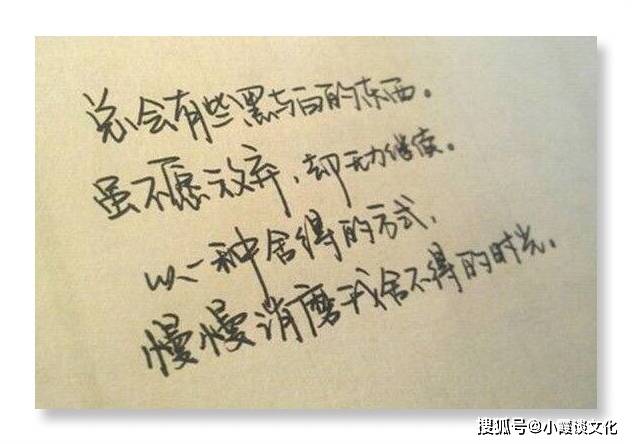 总会有些黑与白的东西。
虽不愿放弃，却无力继续。
以一种舍得的方式，
慢慢消磨我舍不得的时光。
搜狐号@小霞谈文化